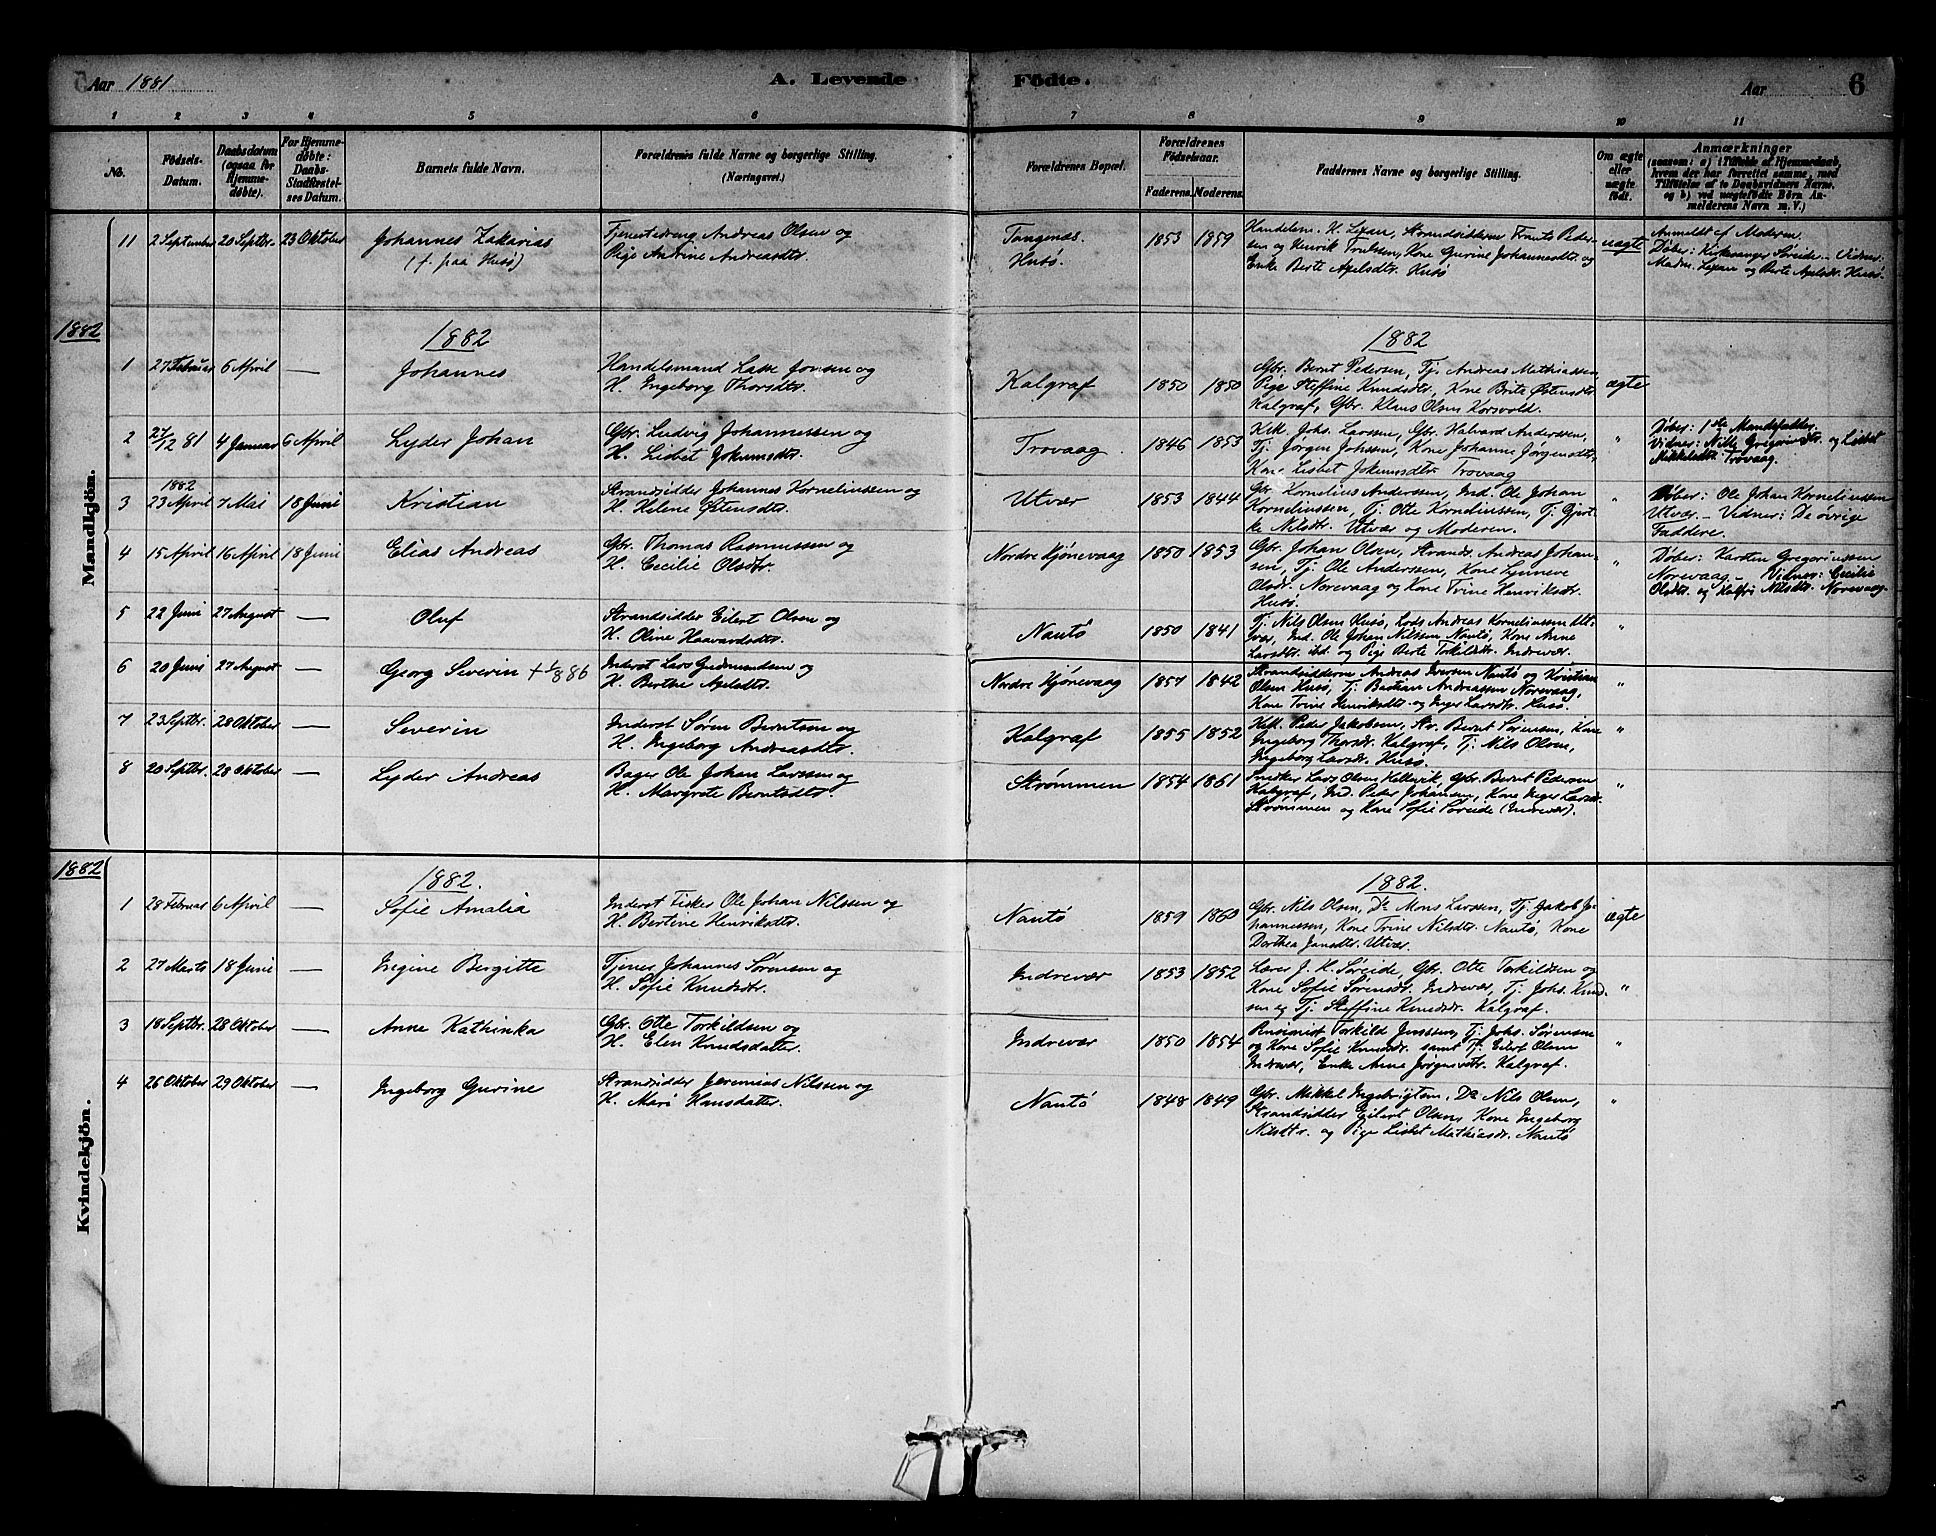 Aar 1881
A. Levende
Födte.
Aar
6
1 2 3 4 5 6 7 8 9 10 11
No.
Födsels-Datum.
Daabsdatum (ogsaa for Hjemme-döbte).
For Hjemme-döbte: Daabs-Stadfæstel-ses Datum.
Barnets fulde Navn.
Forældrenes fulde Navne og borgerlige Stilling. (Næringsvei.)
Forældrenes Bopæl.
Forældrenes Födselsaar.
Faderens. Moderens.
Faddernes Navne og borgerlige Stilling.
Om ægte eller uægte födt.
Anmærkninger
(saasom: a) i Tilfælde af Hjemmedaab, hvem der har forrettet samme, med Tilföielse af to Daabsvidners Navne, og b) ved uægtefödte Börn An-melderens Navn m. V.)
Mandkjön.
11 2 September 20 Septbr. 23 Oktober
Johannes Zakarias
(f. paa Husø)
Tjenestedreng Andreas Olsen og
Pige Andrine Andreasdtr.
Tangenæs
Husø.
1853 1859
Handelsm. H. Lexau, Strandsidderne Frants Peder-
sen og Henrik Trulsen, Kone Gurine Johannesdtr. og
Enke Berte Axelsdtr. Husø
uægte
Anmeldt af Moderen.
Døber: Kirkesanger Søreide. Vidner:
Madm. Lexau og Berte Axelsdr. Husø.
1882
1882
1882
1 27 Februar 6 April —
Johannes
Handelsmand Lasse Jonsen og
H. Ingeborg Thorsdtr.
Kalgraf
1850 1850
Gbr. Bernt Pedersen, Tj. Andreas Mathiassen,
Pige Steffine Knudsdtr., Kone Brite Østensdtr.
Kalgraf, Gbr. Klaus Olsen Korsvold.
ægte
2 27/12 81 4 Januar 6 April
Lyder Johan
Gbr. Ludvig Johannessen og
H. Lisbet Jokumsdtr.
Trovaag
1846 1853
Kik. Johs. Larssen, Gbr. Halvard Anderssen,
Tj. Jørgen Johnsen, Kone Johanne Jørgensdtr.
Kone Lisbet Jokumsdtr. Trovaag
"
Døber: 1ste Mandsfadder.
Vidner: Nille Gregoriusdtr. og Lisbet
Mikkelsdtr. Trovaag.
1882
3 23 April 7 Mai 18 Juni
Kristian
Strandsidder Johannes Korneliussen og
H. Helene Østensdtr.
Utvær
1853 1844
Gbr. Kornelius Anderssen, Ind. Ole Johan
Korneliussen, Tj. Otte Korneliussen, Tj. Gjert-
ke Nilsdtr. Utvær og Moderen.
"
Døber: Ole Johan Korneliussen
Utvær. — Vidner: De øvrige
Faddere.
4 15 April 16 April 18 Juni
Elias Andreas
Gbr. Thomas Rasmussen og
H. Cecilie Olsdtr.
Nordre Kjønevaag
1850 1853
Gbr. Johan Olsen, Strands. Andreas Johan-
sen, Tj. Ole Anderssen, Kone Lynneve
Olsdtr. Norevaag og Kone Trine Henriksdtr.
Husø.
"
Døber: Karsten Gregoriussen
Norevaag — Vidner: Cecilie
Olsdtr. og Nilsdtr. Norevaag.
5 22 Juni 27 August —
Oluf
Strandsidder Eilert Olsen og
H. Oline Haavardsdtr.
Nautø
1850 1841
Tj. Nils Olsen Husø, Lods Andreas Korneliussen Ut-
vær, Ind. Ole Johan Nilssen Nautø, Kone Anne
Larsdtr. ibd. og Pige Berte Torkildsdtr. Indrevær.
"
6 20 Juni 27 August —
Georg Severin + 1/8 86
Inderst Lars Gudmundsen og
H. Berthe Axelsdtr.
Nordre Kjønevaag
1857 1842
Strandsidderne Andreas Iversen Nautø og Kristian
Olsen Husø, Tj. Bastian Andreassen Norevaag,
Kone Trine Henriksdtr. og Inger Larsdtr. Husø.
"
7 23 Septbr. 28 Oktober —
Severin
Inderst Søren Berntsen og
H. Ingeborg Andreasdtr.
Kalgraf
1855 1852
Kik. Peder Jakobsen, Str. Bernt Sørensen, Kone
Ingeborg Thorsdr. Kalgraf, Tj. Nils Olsen,
Ingeborg Larsdr. Husø.
"
8 20 Septbr. 28 Oktober —
Lyder Andreas
Bager Ole Johan Larssen og
H. Margrete Berntsdtr.
Strømmen
1854 1861
Snedker Lars Olsen Kellevik, Gbr. Bernt Pedersen
Kalgraf, Ind. Peder Johansen, Kone Inger Larsdr.
Strømmen og Kone Sofie Søreide (Indrevær).
"
Kvindekjön.
1882
1882.
1882.
1 28 Februar 6 April —
Sofie Amalia
Inderst Fisker Ole Johan Nilssen og
H. Bertine Henriksdtr.
Nautø
1859 1860
Gbr. Nils Olsen, Do Mons Larssen, Tj. Jakob Jo-
hannessen, Kone Trine Nilsdtr. Nautø, Kone
Dorthea Jansdtr. Utvær.
ægte
2 27 Marts 18 Juni —
Ingine Bergitte
Tjener Johannes Sørensen og
H. Sofie Knudsdtr.
Indrevær
1853 1852
Lærer J. H. Søreide, Gbr. Otte Torkildsen og
Kone Sofie Sørensdtr. Indrevær, Tj. Johs. Knud-
sen og Tj. Steffine Knudsdr. Kalgraf.
"
3 18 Septbr. 28 Oktober —
Anne Kathinka
Gbr. Otte Torkildsen og
H. Elen Knudsdatter.
Indrevær
1850 1854
Pensionist Torkild Jenssen, Tj. Johs. Sørensen
og Kone Sofie Knudsdr. samt Tj. Eilert Olsen
Indrevær, Enke Anne Jørgensdtr. Kalgraf.
"
4 26 Oktober 29 Oktober —
Ingeborg Gurine
Strandsidder Jeremias Nilssen og
H. Mari Hansdatter.
Nautø
1848 1849
Gbr. Mikkel Ingebrigtsen, Do Nils Olsen,
Strandsidder Eilert Olsen, Kone Ingeborg
Nilsdtr. og Pige Lisbet Mathiasdr. Nautø
"